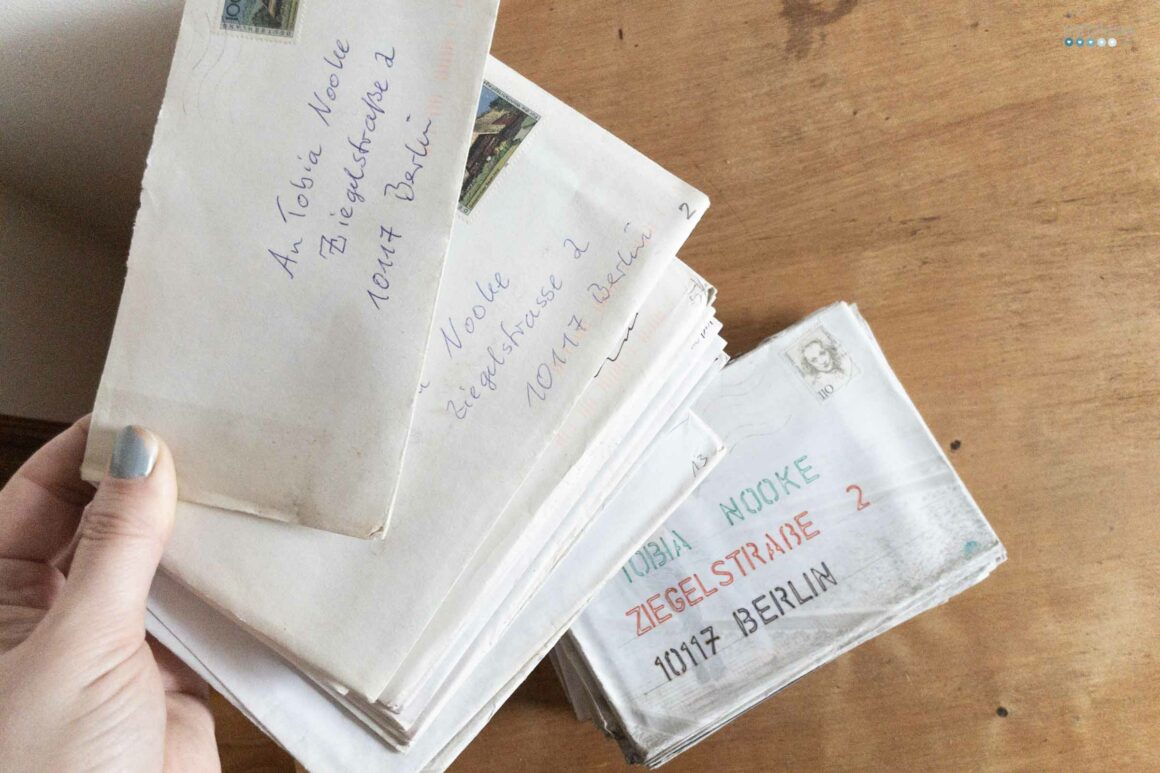 100
An Tobia Nooke
Ziegelstraße 2
10117 Berlin
2
Nooke
Ziegelstrasse 2
10117 Berlin
13
110
TOBIA NOOKE
ZIEGELSTRAßE 2
10117 BERLIN